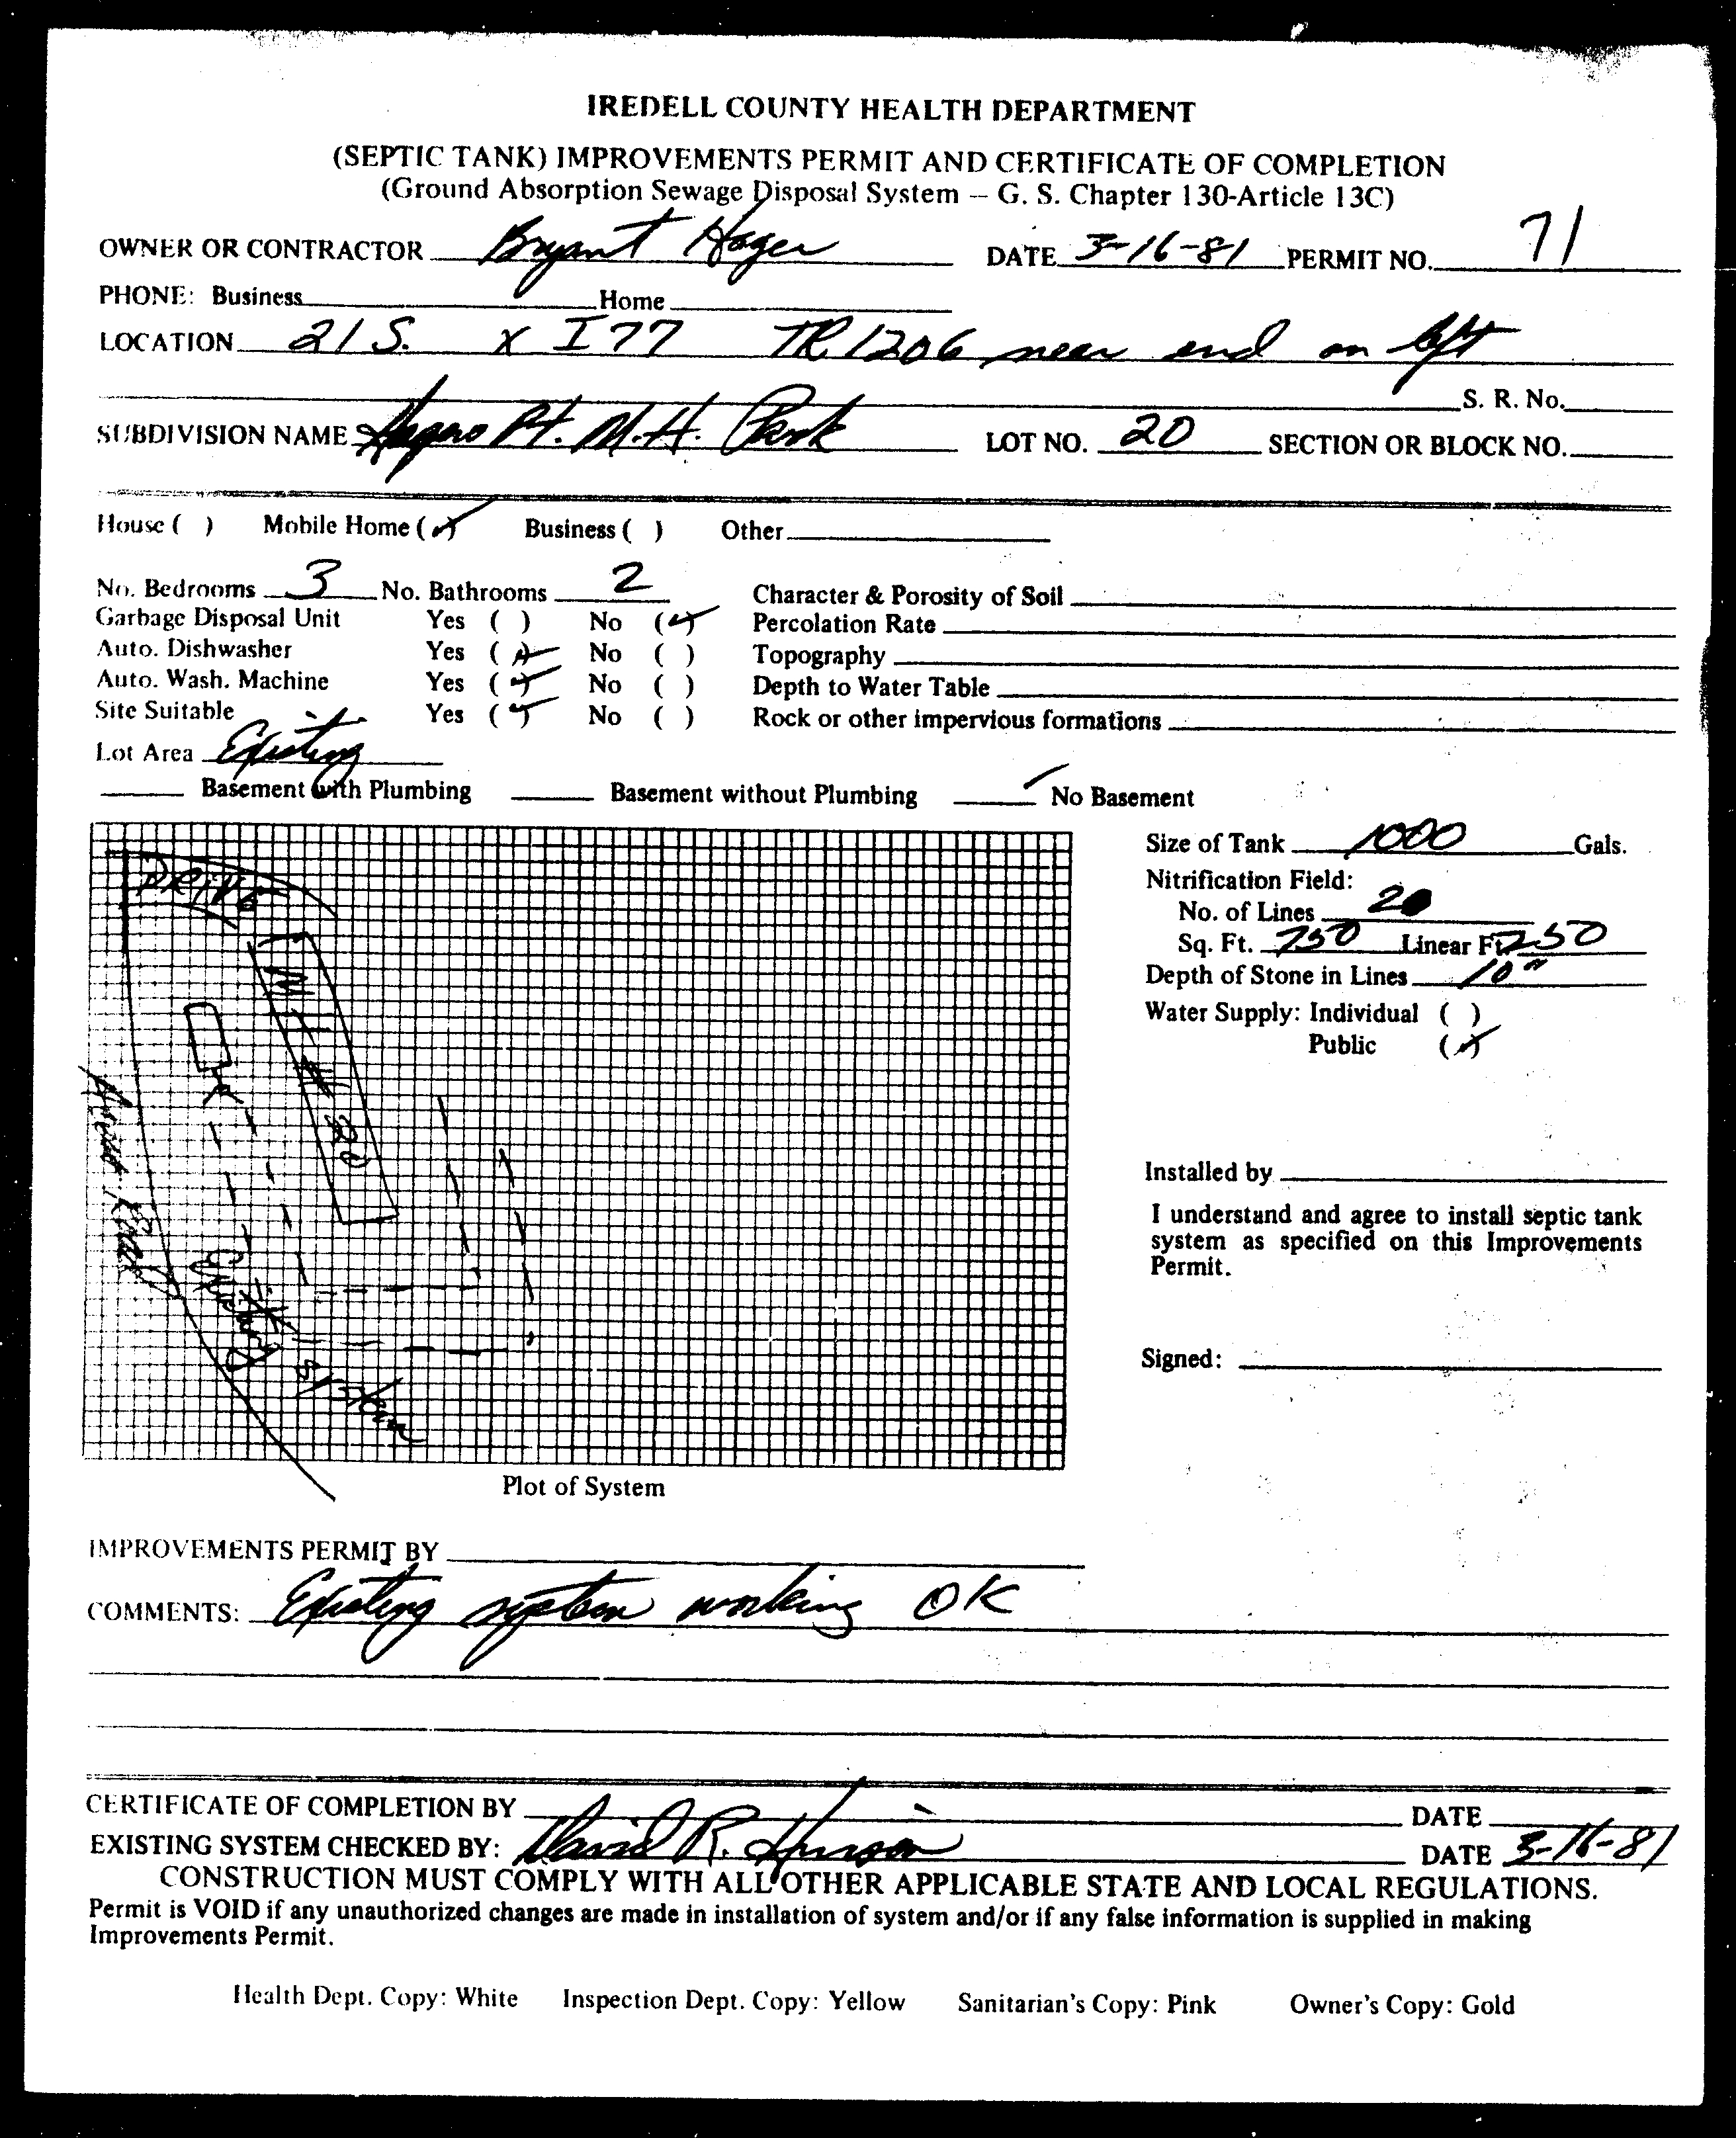 IREDELL COUNTY HEALTH DEPARTMENT
(SEPTIC TANK) IMPROVEMENTS PERMIT AND CERTIFICATE OF COMPLETION
(Ground Absorption Sewage Disposal System — G. S. Chapter 130-Article 13C)
OWNER OR CONTRACTOR Bryant Hager DATE 3-16-81 PERMIT NO. 71
PHONE: Business Home
LOCATION 21 S. x I 77 TR 1206 near end on left
S. R. No.
SUBDIVISION NAME Hagers Pt. M.H. Park LOT NO. 20 SECTION OR BLOCK NO.
House ( ) Mobile Home (✓) Business ( ) Other
No. Bedrooms 3 No. Bathrooms 2 Character & Porosity of Soil
Garbage Disposal Unit Yes ( ) No (✓) Percolation Rate
Auto. Dishwasher Yes (✓) No ( ) Topography
Auto. Wash. Machine Yes (✓) No ( ) Depth to Water Table
Site Suitable Yes (✓) No ( ) Rock or other impervious formations
Lot Area Existing
Basement with Plumbing Basement without Plumbing ✓ No Basement
Size of Tank 1000 Gals.
Nitrification Field:
No. of Lines 2
Sq. Ft. 750 Linear Ft. 250
Depth of Stone in Lines 10"
Water Supply: Individual ( )
Public (✓)
Installed by
I understand and agree to install septic tank
system as specified on this Improvements
Permit.
Signed:
DRIVE
# 20
System
Plot of System
IMPROVEMENTS PERMIT BY
COMMENTS: Existing system working OK
CERTIFICATE OF COMPLETION BY DATE
EXISTING SYSTEM CHECKED BY: David R. DATE 3-16-81
CONSTRUCTION MUST COMPLY WITH ALL OTHER APPLICABLE STATE AND LOCAL REGULATIONS.
Permit is VOID if any unauthorized changes are made in installation of system and/or if any false information is supplied in making
Improvements Permit.
Health Dept. Copy: White Inspection Dept. Copy: Yellow Sanitarian's Copy: Pink Owner's Copy: Gold